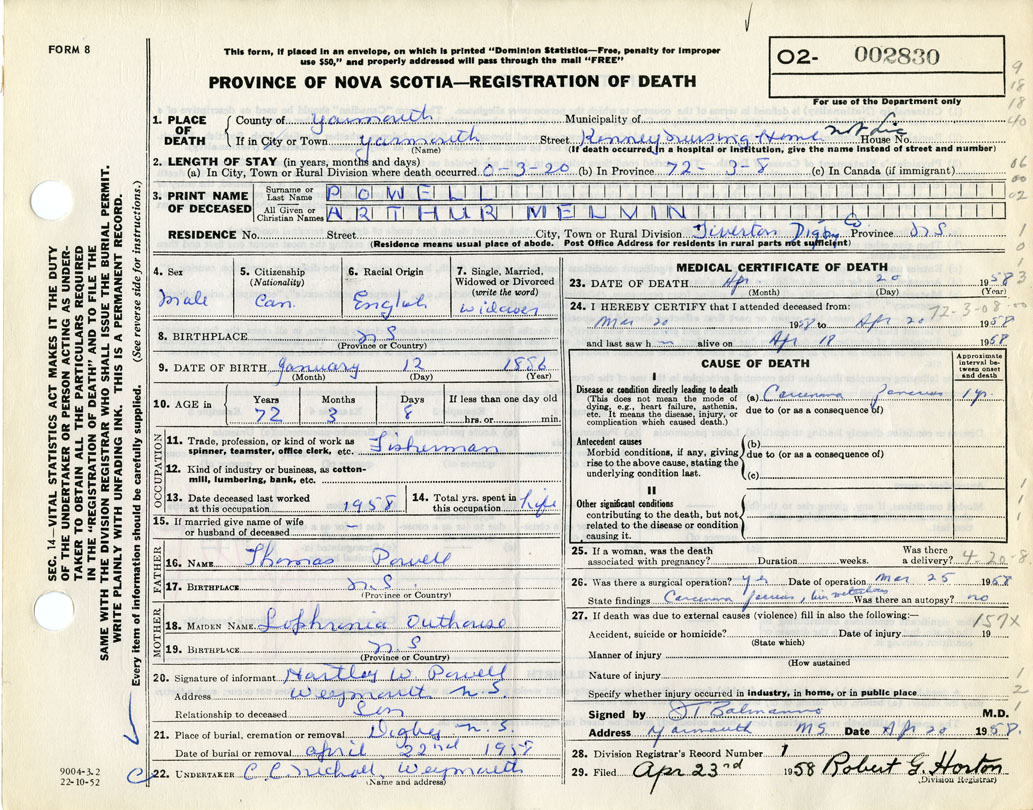 FORM 8
This form, if placed in an envelope, on which is printed "Dominion Statistics—Free, penalty for improper
use $50," and properly addressed will pass through the mail "FREE"
PROVINCE OF NOVA SCOTIA—REGISTRATION OF DEATH
02- 002830
For use of the Department only
SEC. 14—VITAL STATISTICS ACT MAKES IT THE DUTY
OF THE UNDERTAKER OR PERSON ACTING AS UNDER-
TAKER TO OBTAIN ALL THE PARTICULARS REQUIRED
IN THE "REGISTRATION OF DEATH" AND TO FILE THE
SAME WITH THE DIVISION REGISTRAR WHO SHALL ISSUE THE BURIAL PERMIT.
WRITE PLAINLY WITH UNFADING INK. THIS IS A PERMANENT RECORD.
Every item of information should be carefully supplied. (See reverse side for instructions.)
1. PLACE OF DEATH
County of Yarmouth Municipality of
If in City or Town Yarmouth Street Kenney Nursing Home not Lic House No.
(Name) (If death occurred in a Hospital or Institution, give the name instead of street and number)
2. LENGTH OF STAY (in years, months and days)
(a) In City, Town or Rural Division where death occurred 0-3-20 (b) In Province 72-3-8 (c) In Canada (if immigrant)
3. PRINT NAME OF DECEASED
Surname or Last Name POWELL
All Given or Christian Names ARTHUR MELVIN
RESIDENCE No. Street City, Town or Rural Division Tiverton Digby Co Province N S
(Residence means usual place of abode. Post Office Address for residents in rural parts not sufficient)
4. Sex
male
5. Citizenship
(Nationality)
Can.
6. Racial Origin
English
7. Single, Married,
Widowed or Divorced
(write the word)
Widower
8. BIRTHPLACE N S
(Province or Country)
9. DATE OF BIRTH January 12 1886
(Month) (Day) (Year)
10. AGE in Years Months Days If less than one day old
72 3 8 hrs. or min.
OCCUPATION
11. Trade, profession, or kind of work as
spinner, teamster, office clerk, etc. Fisherman
12. Kind of industry or business, as cotton-
mill, lumbering, bank, etc.
13. Date deceased last worked
at this occupation 1958
14. Total yrs. spent in
this occupation Life
15. If married give name of wife
or husband of deceased –
FATHER
16. NAME Thomas Powell
17. BIRTHPLACE N.S.
(Province or Country)
MOTHER
18. MAIDEN NAME Lophrinia Outhouse
19. BIRTHPLACE N S
(Province or Country)
20. Signature of informant Hartley W Powell
Address Weymouth N.S
Relationship to deceased Son
21. Place of burial, cremation or removal Digby N.S.
Date of burial or removal April 22nd 1958
22. UNDERTAKER C. C. Nicholl, Weymouth
(Name and address)
9004-3.2
22-10-52
MEDICAL CERTIFICATE OF DEATH
23. DATE OF DEATH Apr 20 1958
(Month) (Day) (Year)
24. I HEREBY CERTIFY that I attended deceased from:
72-3-08
Mar 20 1958 to Apr 20 1958
and last saw h m alive on Apr 18 1958
CAUSE OF DEATH
Approximate
interval be-
tween onset
and death
I
Disease or condition directly leading to death
(This does not mean the mode of
dying, e.g., heart failure, asthenia,
etc. It means the disease, injury, or
complication which caused death.)
(a) Carcinoma Pancreas 1 yr.
due to (or as a consequence of)
Antecedent causes
Morbid conditions, if any, giving
rise to the above cause, stating the
underlying condition last.
(b)
due to (or as a consequence of)
(c)
II
Other significant conditions
contributing to the death, but not
related to the disease or condition
causing it.
25. If a woman, was the death
associated with pregnancy? Duration weeks. Was there
a delivery?
4-20-8
26. Was there a surgical operation? yes Date of operation Mar 25 1958
State findings Carcinoma pancreas, liver metastases Was there an autopsy? no
27. If death was due to external causes (violence) fill in also the following:—
157X
Accident, suicide or homicide? Date of injury 19
(State which)
Manner of injury
(How sustained
Nature of injury
Specify whether injury occurred in industry, in home, or in public place
Signed by M.D.
Address Yarmouth N S Date Apr 20 1958.
28. Division Registrar's Record Number 1
29. Filed Apr 23rd 1958 Robert G. Horton
(Division Registrar)